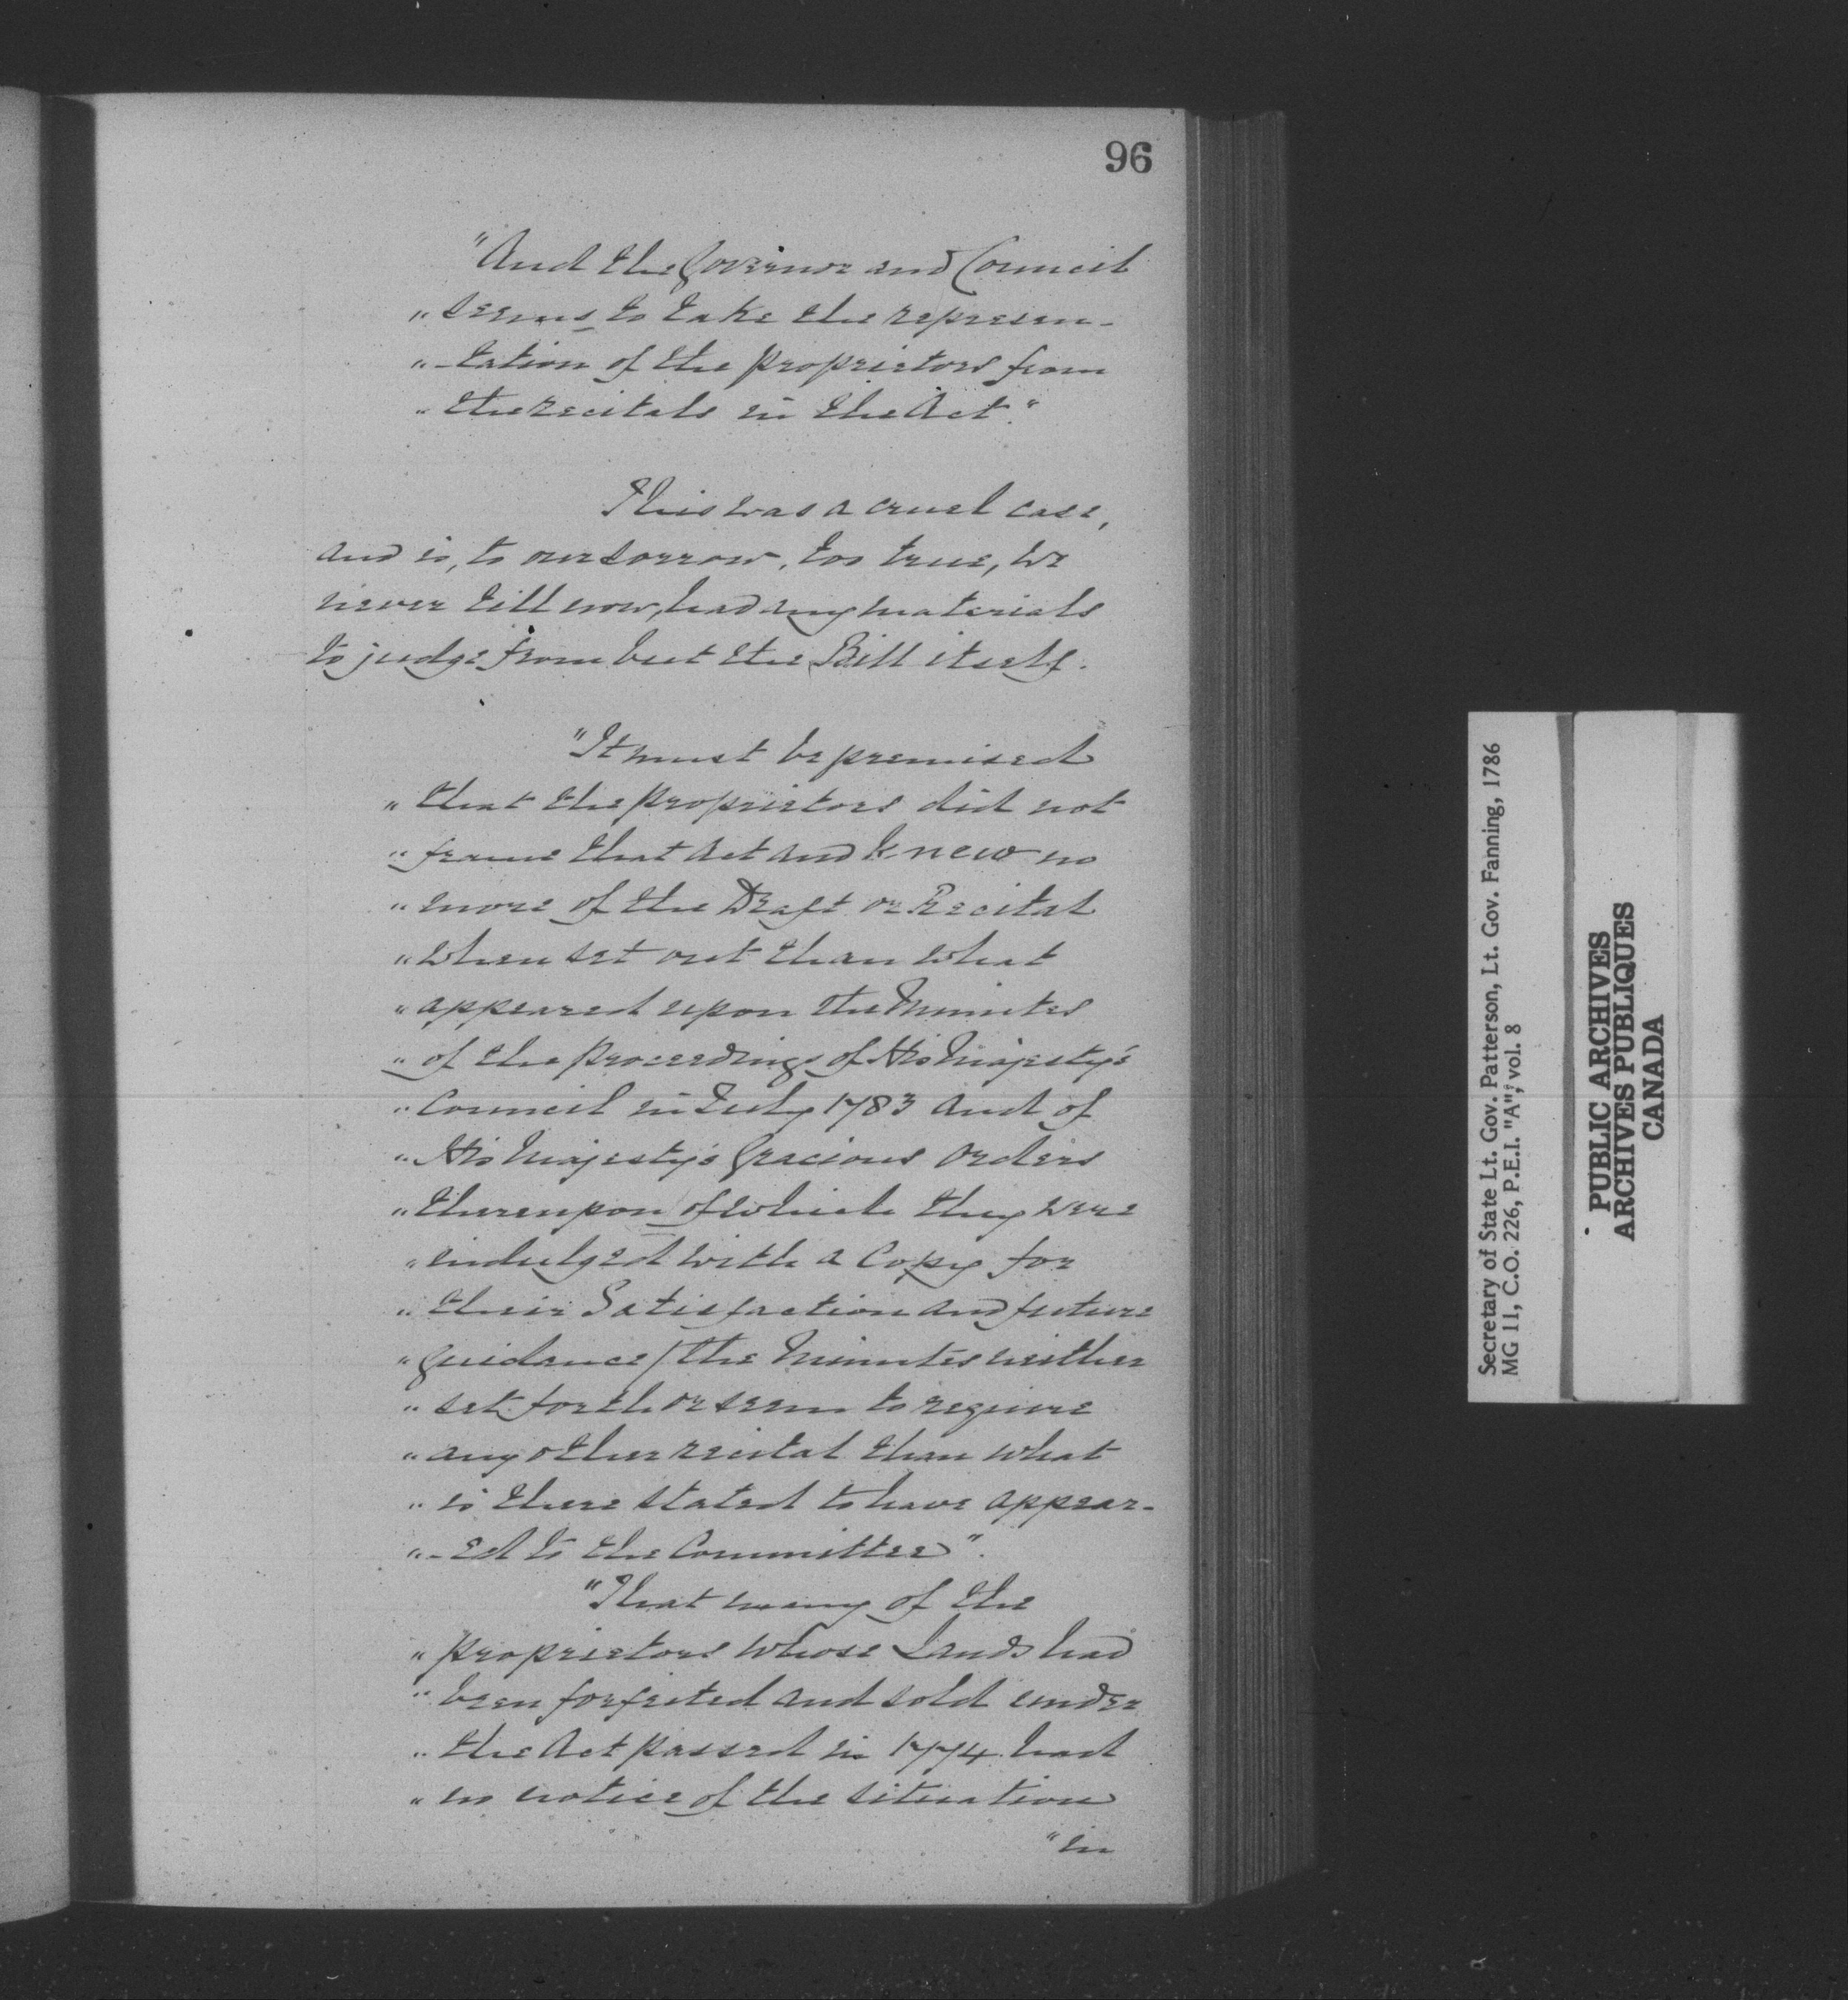 96
"And the Governor and Council
" seems to take the represen-
" -tation of the proprietors from
" the recitals in the Act."
This was a cruel case,
and is, to our sorrow, too true, We
never till now, had any materials
to judge from but the Bill itself.
"It must be premised
" that the proprietors did not
" frame that Act and knew no
" more of the Draft or Recital
" when set out than what
" appeared upon the Minutes
" of the Proceedings of His Majesty's
" Council in July 1783 and of
" His Majesty's Gracious Orders
" thereupon of which they were
" indulged with a Copy for
" their Satisfaction and future
" Guidance / the Minutes neither
" set forth or seem to require
" any other recital than what
" is there stated to have appear-
" -ed to the Committee".
"That many of the
" proprietors whose Lands had
" been forfeited and sold under
" the Act passed in 1774 had
" no notice of the situation
" in
Secretary of State Lt. Gov. Patterson, Lt. Gov. Fanning, 1786
MG 11, C.O. 226, P.E.I. "A", vol. 8
PUBLIC ARCHIVES
ARCHIVES PUBLIQUES
CANADA